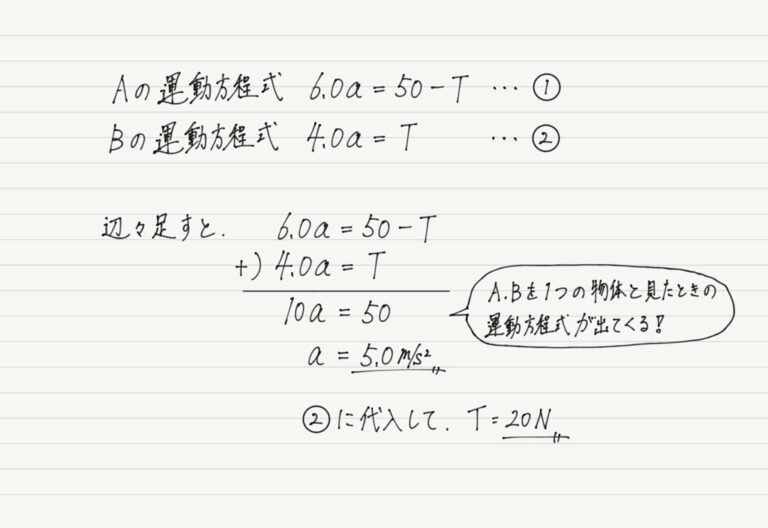 Aの運動方程式 6.0a = 50 − T … ①
Bの運動方程式 4.0a = T … ②
辺々足すと. 6.0a = 50 − T
+) 4.0a = T
10a = 50
A.Bを1つの物体と見たときの
運動方程式が出てくる!
a = 5.0m/s²〃
②に代入して. T = 20N〃